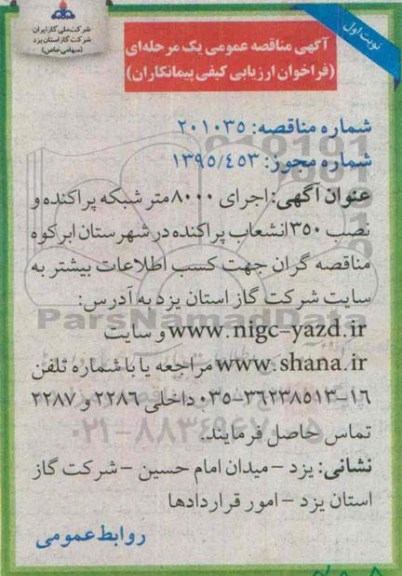 شرکت ملی گاز ایران
شرکت گاز استان یزد
(سهامی خاص)
نوبت اول
آگهی مناقصه عمومی یک مرحله‌ای
(فراخوان ارزیابی کیفی پیمانکاران)
شماره مناقصه: ۲۰۱۰۳۵
شماره مجوز: ۱۳۹۵/۴۵۳
عنوان آگهی: اجرای ۸۰۰۰ متر شبکه پراکنده و
نصب ۳۵۰ انشعاب پراکنده در شهرستان ابرکوه
مناقصه گران جهت کسب اطلاعات بیشتر به
سایت شرکت گاز استان یزد به آدرس:
www.nigc-yazd.ir و سایت
www.shana.ir مراجعه یا با شماره تلفن
۰۳۵-۳۶۲۳۸۵۱۳-۱۶ داخلی ۲۲۸۶ و ۲۲۸۷
تماس حاصل فرمایند.
نشانی: یزد - میدان امام حسین - شرکت گاز
استان یزد - امور قراردادها
روابط عمومی
ParsNamadData
۰۲۱-۸۸۳۴۹۶۷۰-۵